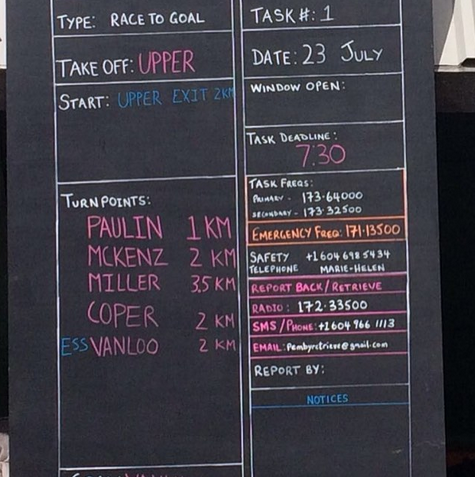 TYPE: RACE TO GOAL
TAKE OFF: UPPER
START: UPPER EXIT 2KM
TURNPOINTS:
PAULIN 1 KM
MCKENZ 2 KM
MILLER 3,5 KM
COPER 2 KM
ESS VANLOO 2 KM
TASK #: 1
DATE: 23 JULY
WINDOW OPEN:
TASK DEADLINE:
7:30
TASK FREQS:
PRIMARY - 173.64000
SECONDARY - 173.32500
EMERGENCY FREQ: 171.13500
SAFETY +1 604 698 5434
TELEPHONE MARIE-HELEN
REPORT BACK/RETRIEVE
RADIO: 172.33500
SMS/PHONE: +1 604 966 1113
EMAIL: Pembyretrieve@gmail.com
REPORT BY:
NOTICES